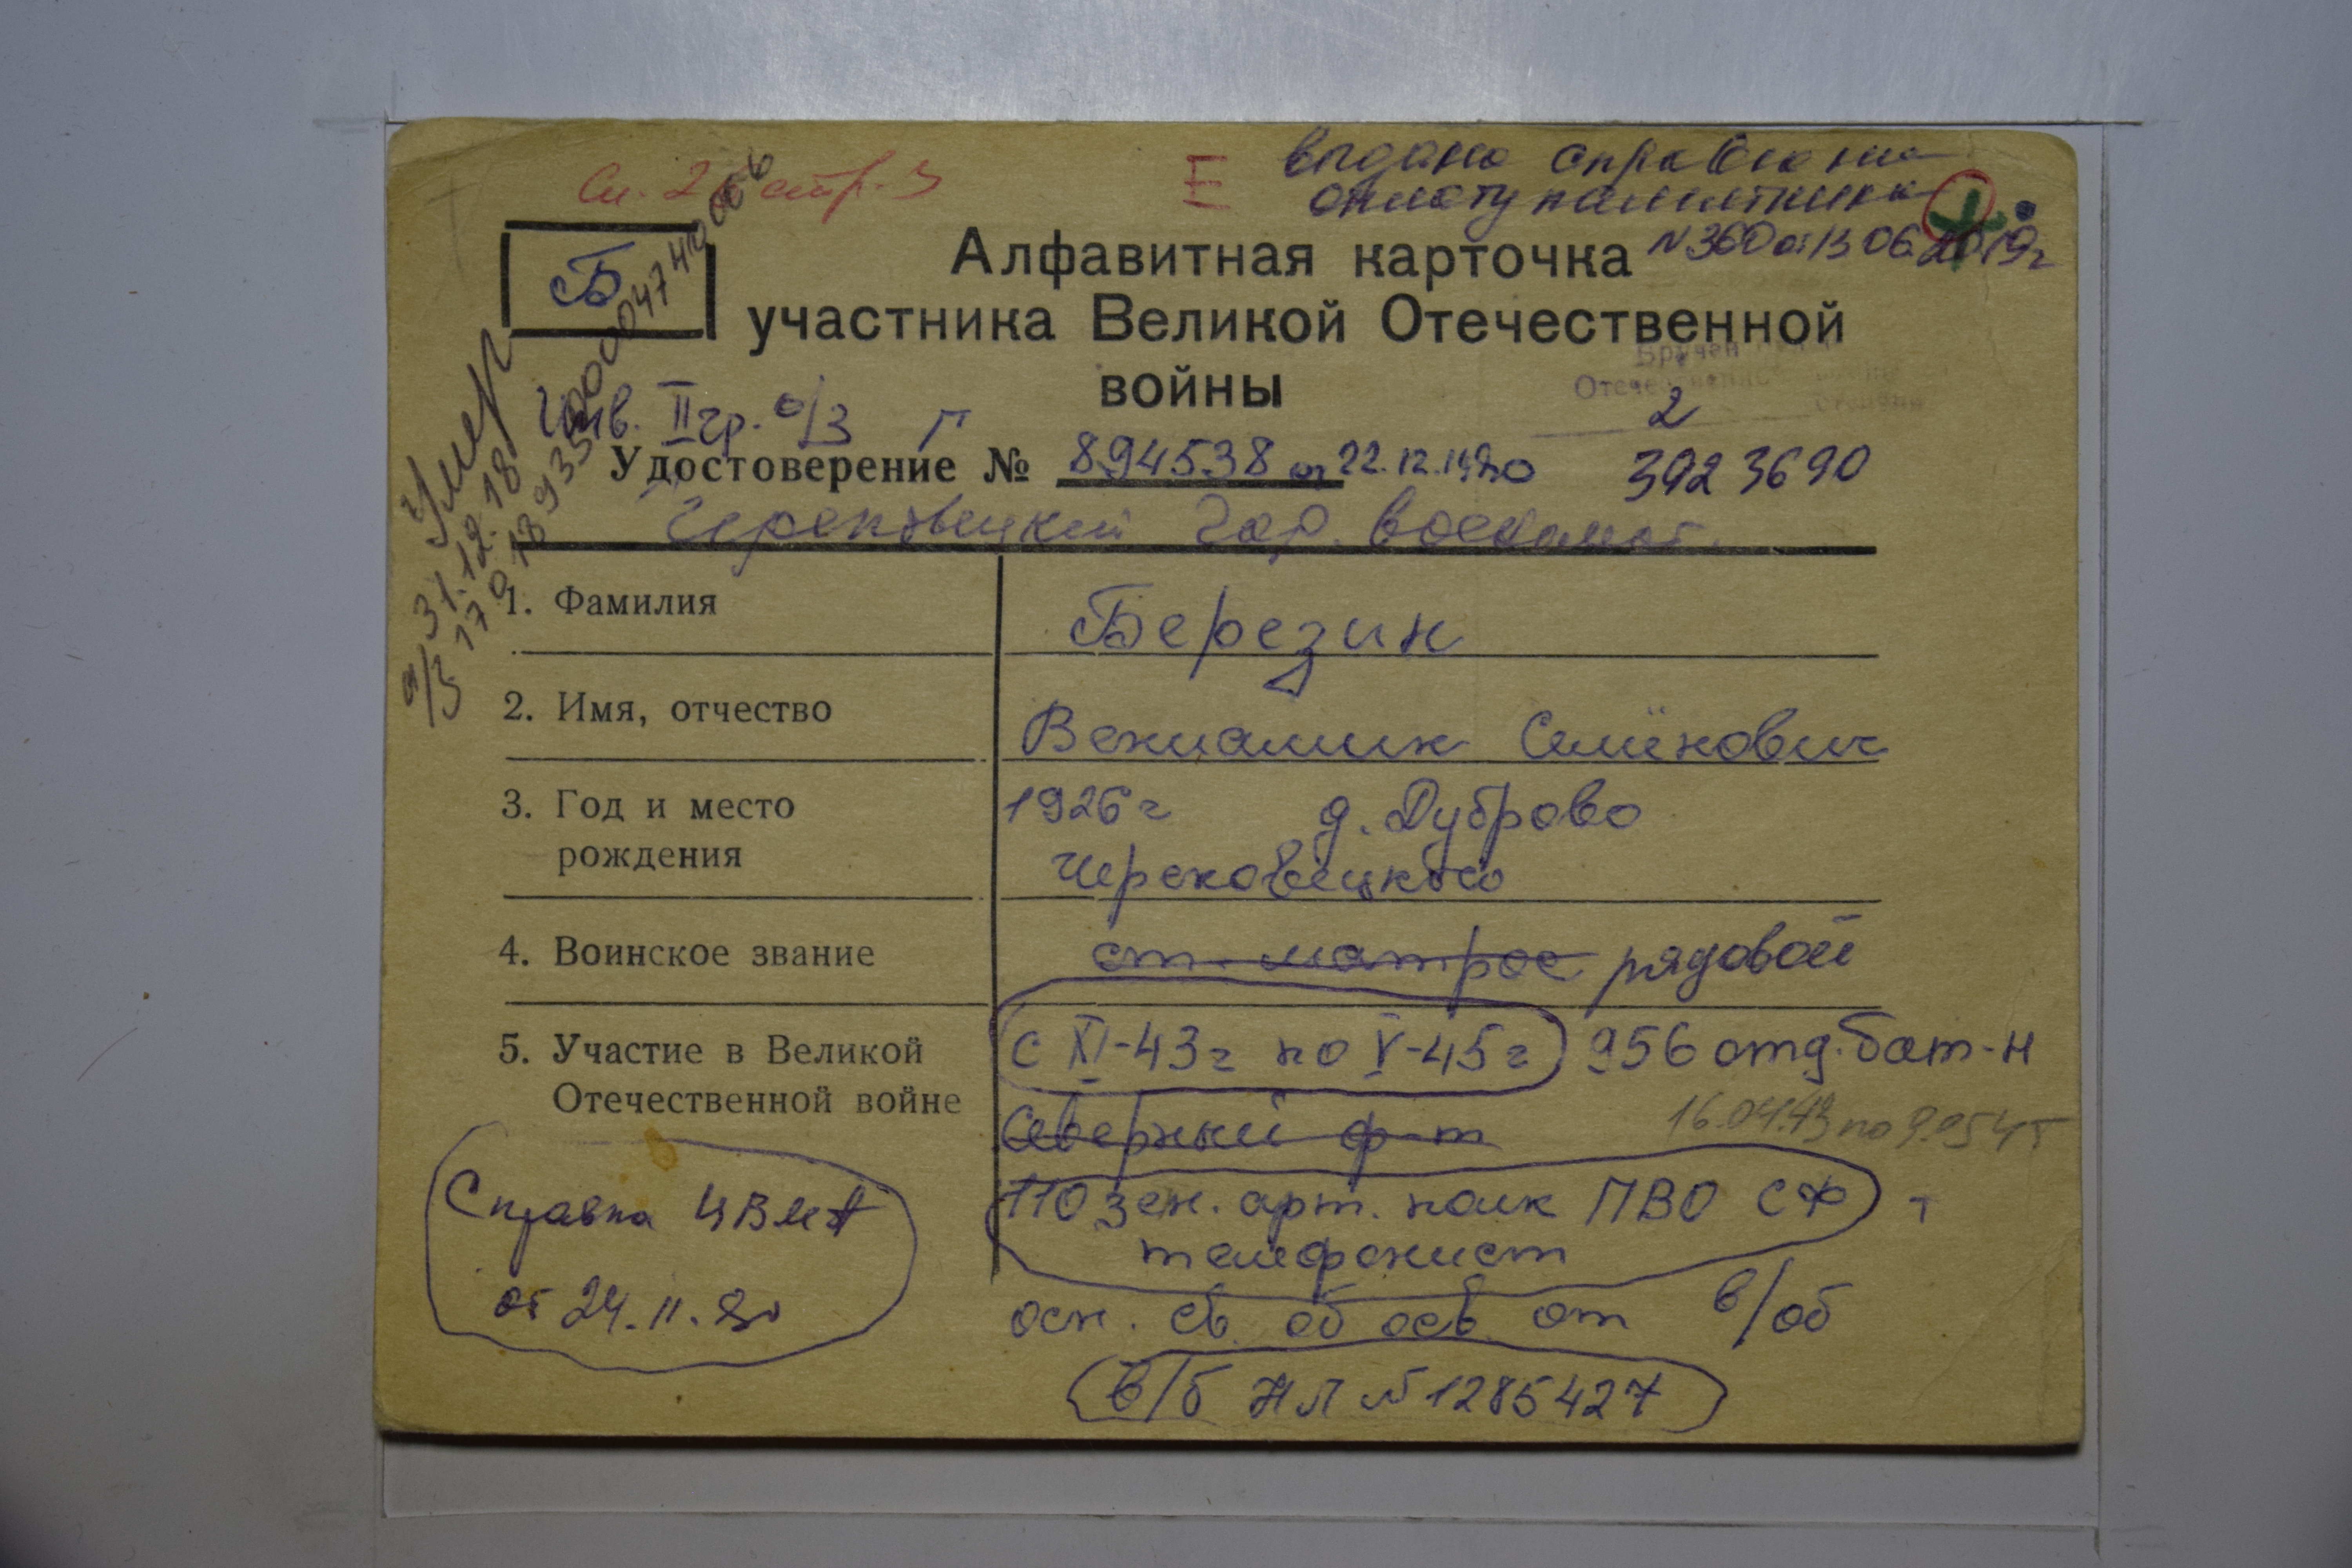 См. 2 стр. 3
Е
выдана справка на
оплату памятника
N 360 от 13 06 2019 г
Б
Алфавитная карточка
участника Великой Отечественной
войны
Инв. II гр. о/з Г
2
Удостоверение № 894538 от 22.12.1980 3923690
Череповецкий гор. военкомат.
Умер
31.12.18
а/з
1. Фамилия Березин
2. Имя, отчество Вениамин Семёнович
3. Год и место 1926 г д. Дуброво
рождения Череповецкого
4. Воинское звание ст. матрос рядовой
5. Участие в Великой с XI-43 г по V-45 г 956 отд. бат-н
Отечественной войне Северный ф-т
110 зен. арт. полк ПВО СФ
телефонист
Справка ЦВМА
от 24.11.80
осн. св. об осв. от в/об
в/б НЛ № 1285427